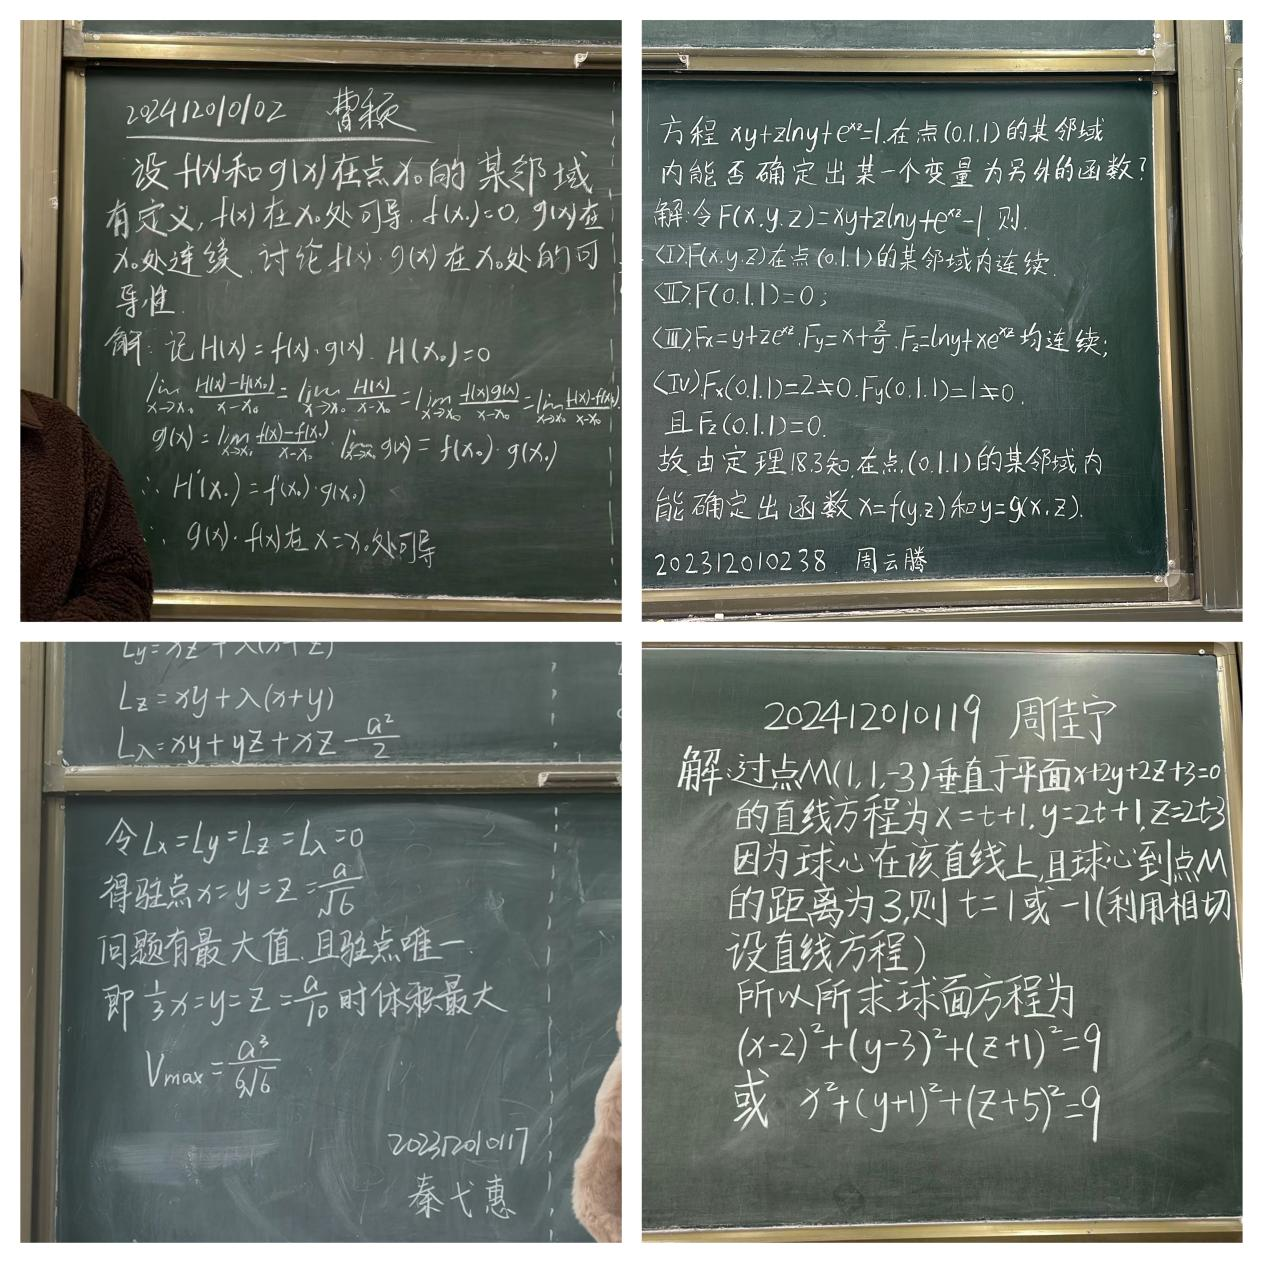 202412010102 曹颖
设f(x)和g(x)在点x₀的某邻域
有定义,f(x)在x₀处可导.f(x₀)=0,g(x)在
x₀处连续.讨论f(x)·g(x)在x₀处的可
导性.
解:记H(x)=f(x)·g(x).H(x₀)=0
lim x→x₀ H(x)-H(x₀)/x-x₀ = lim x→x₀ H(x)/x-x₀ = lim x→x₀ f(x)g(x)/x-x₀ = lim x→x₀ f(x)-f(x₀)/x-x₀ ·
g(x)=lim x→x₀ f(x)-f(x₀)/x-x₀ · lim x→x₀ g(x)=f(x₀)·g(x₀)
∴H'(x₀)=f'(x₀)·g(x₀)
∴g(x)·f(x)在x=x₀处可导
方程 xy+zlny+e^{xz}=1.在点(0.1.1)的某邻域
内能否确定出某一个变量为另外的函数?
解:令F(x.y.z)=xy+zlny+e^{xz}-1.则.
<I>.F(x.y.z)在点(0.1.1)的某邻域内连续.
<II>.F(0.1.1)=0;
<III>.Fx=y+ze^{xz}.Fy=x+z/y.Fz=lny+xe^{xz}均连续;
<IV>.Fx(0.1.1)=2≠0.Fy(0.1.1)=1≠0.
且Fz(0.1.1)=0.
故由定理18.3知.在点(0.1.1)的某邻域内
能确定出函数x=f(y.z)和y=g(x.z).
202312010238 周云腾
Ly=xz+λ(x+z)
Lz=xy+λ(x+y)
Lλ=xy+yz+xz-a²/2
令Lx=Ly=Lz=Lλ=0
得驻点x=y=z=a/√6
问题有最大值.且驻点唯一.
即⅓x=y=z=a/10时体积最大
Vmax=a³/6√6
202312010117
秦弋惠
202412010119 周佳宁
解:过点M(1,1,-3)垂直于平面x+2y+2z+3=0
的直线方程为x=t+1,y=2t+1,z=2t-3
因为球心在该直线上,且球心到点M
的距离为3,则t=1或-1(利用相切
设直线方程)
所以所求球面方程为
(x-2)²+(y-3)²+(z+1)²=9
或 x²+(y+1)²+(z+5)²=9